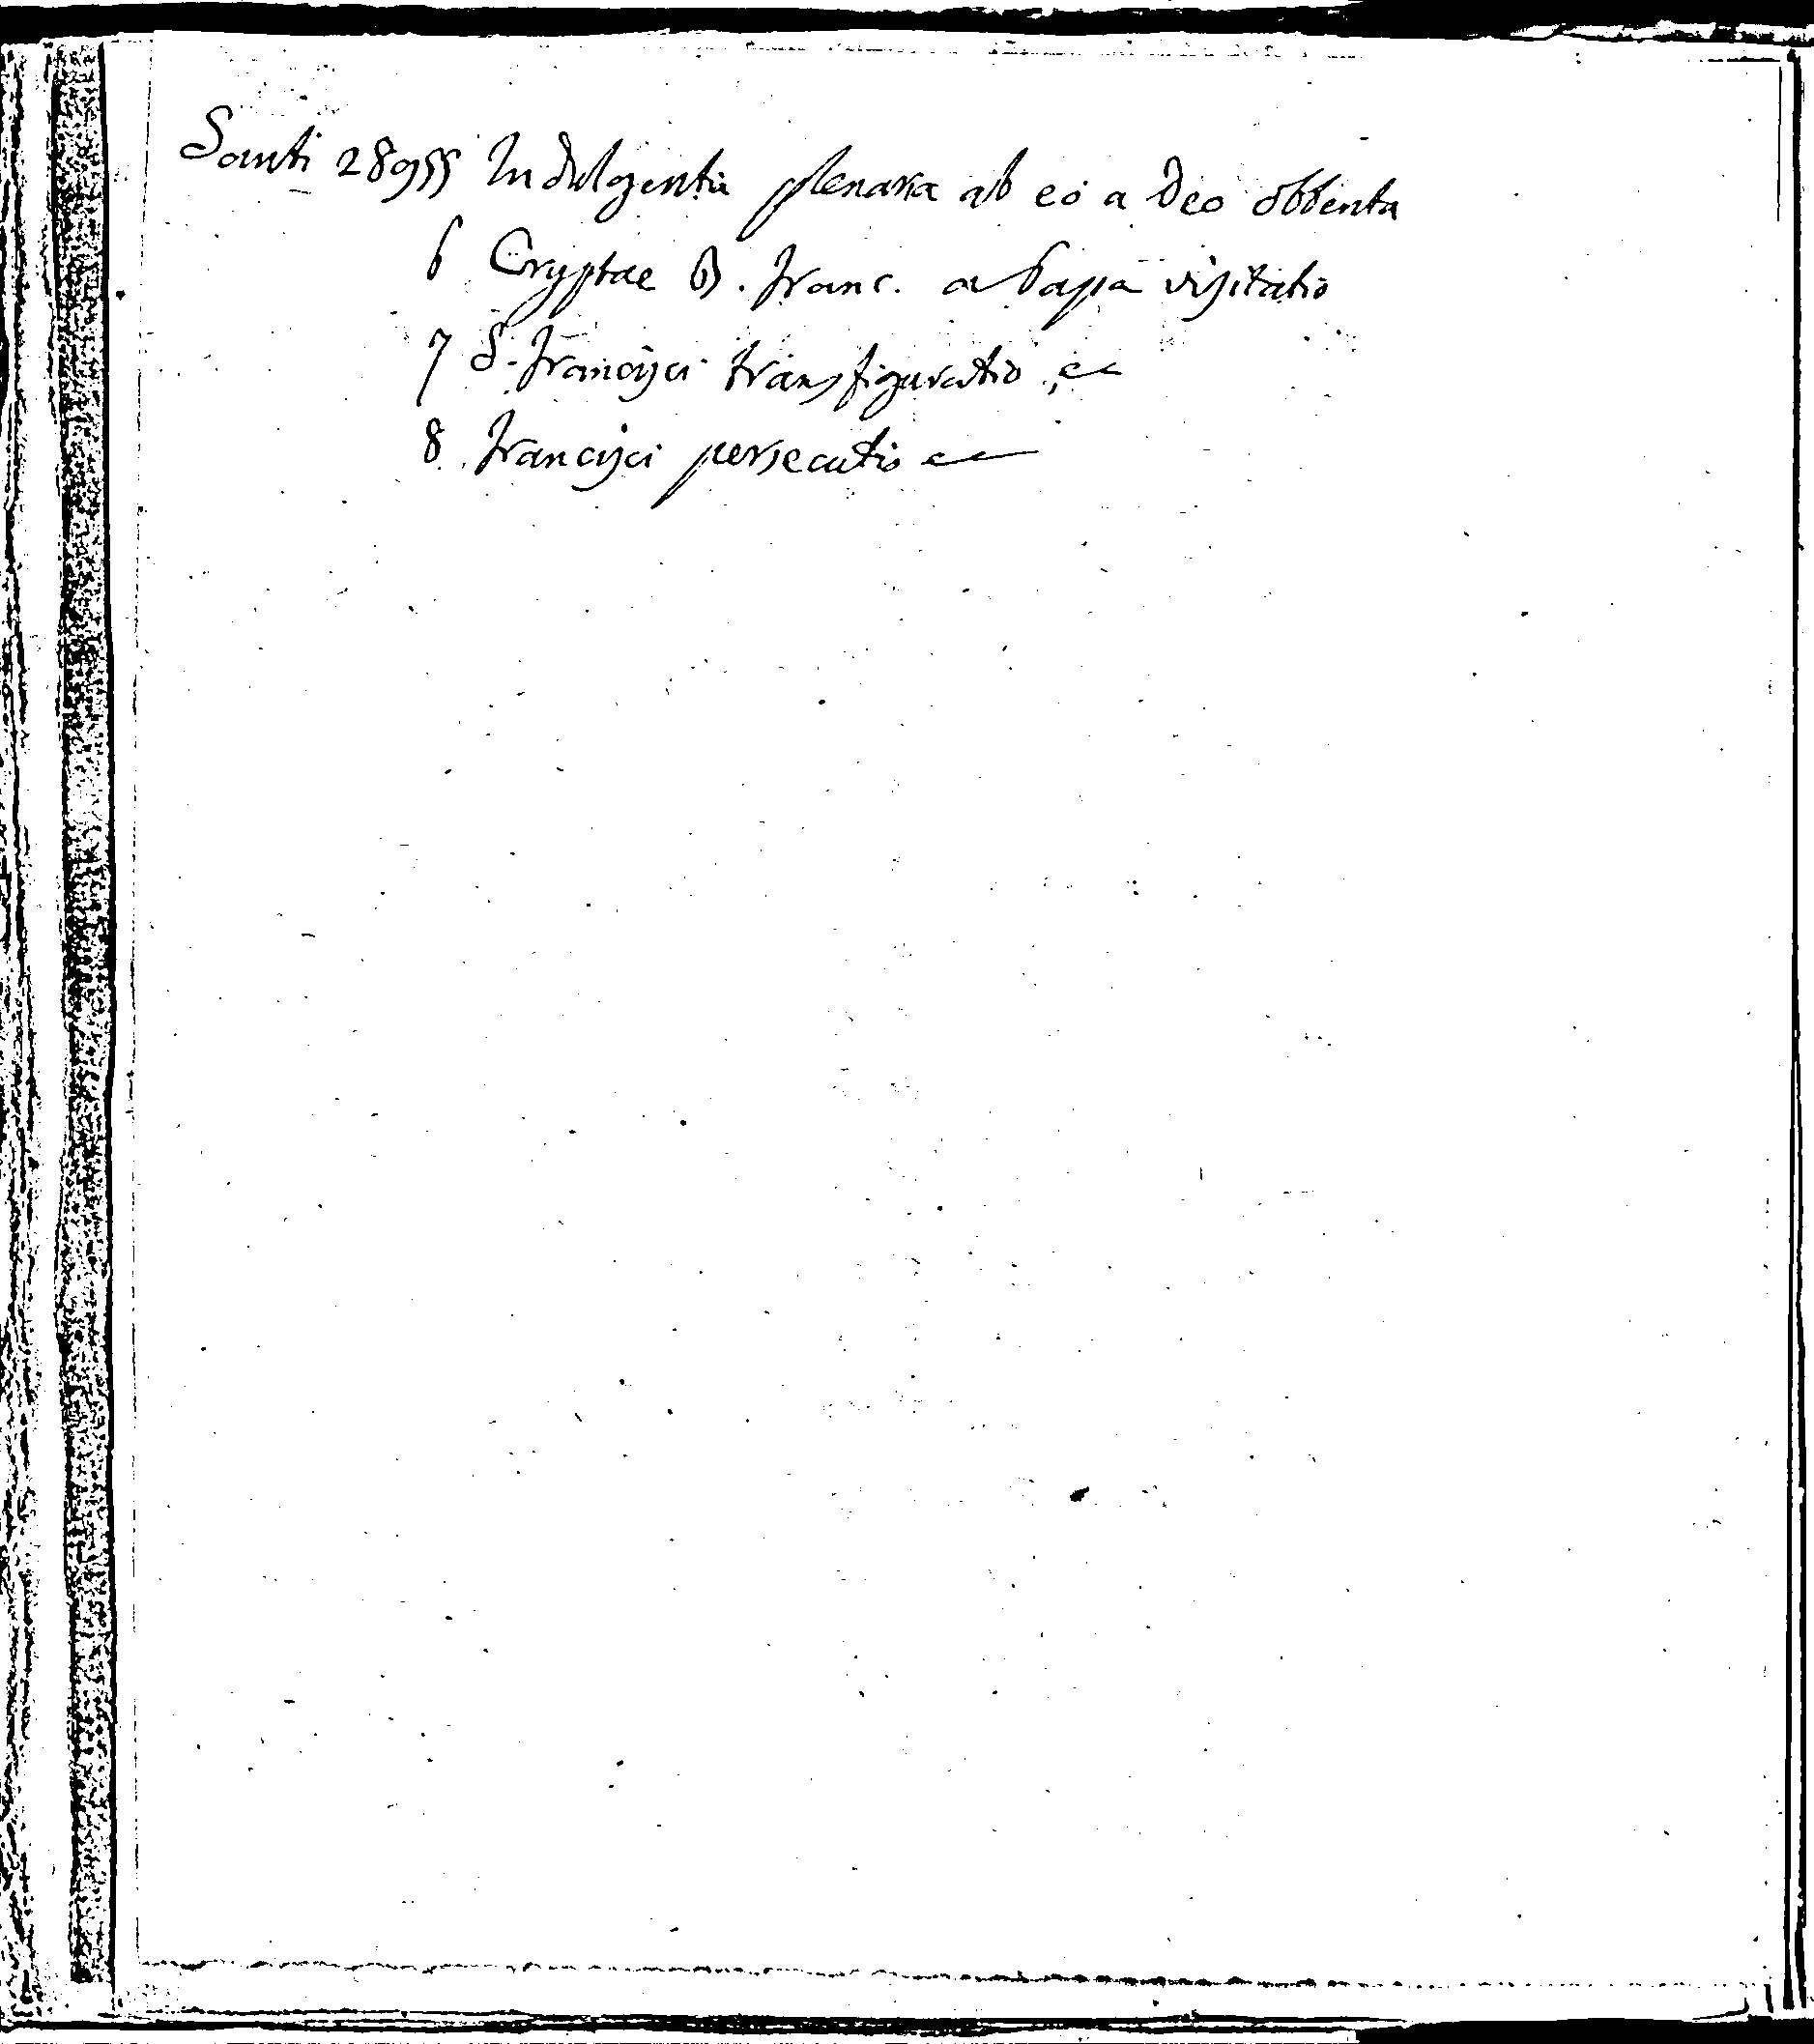 Santi 28955 Indulgentia plenaria ab eo a Deo obtenta
6 Cryptae B. Franc. a Papa visitatio
7 S. Francisci transfiguratio
8 Francisci persecutio